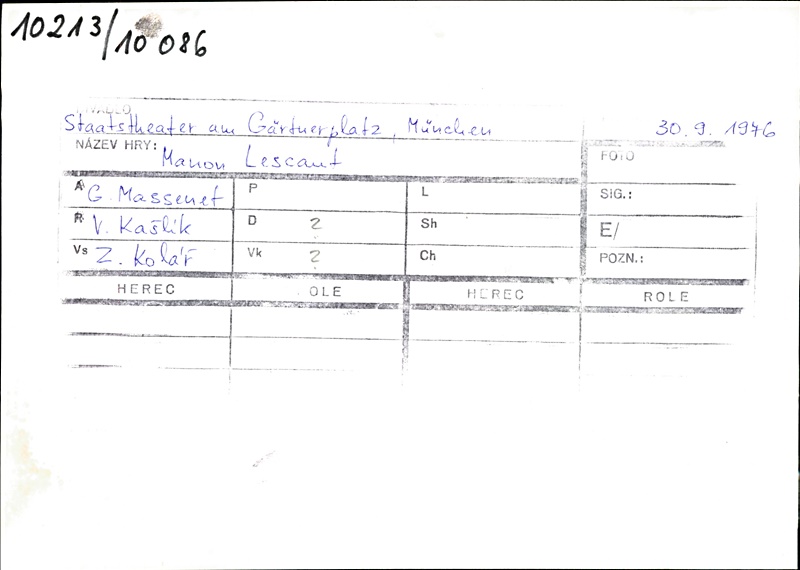 10213/10 086
DIVADLO
Staatstheater am Gärtnerplatz, München 30. 9. 1976
NÁZEV HRY: Manon Lescaut FOTO
A G. Massenet P L SIG.:
R V. Kašlík D 2 Sh E/
Vs Z. Kolář Vk 2 Ch POZN.:
HEREC OLE HEREC ROLE